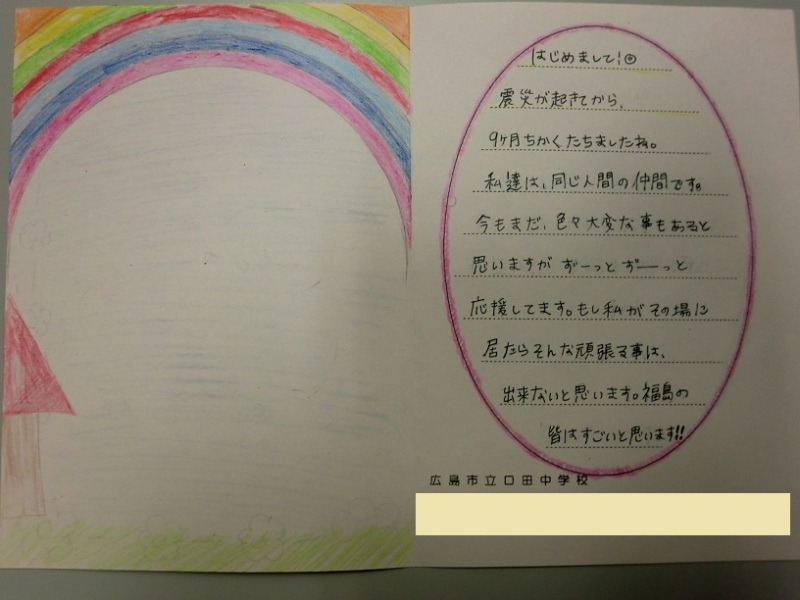 はじめまして!◎
震災が起きてから、
9ヶ月ちかくたちましたね。
私達は、同じ人間の仲間です。
今もまだ、色々大変な事もあると
思いますが ずーっと ずーーっと
応援してます。もし私がその場に
居たらそんな頑張る事は、
出来ないと思います。福島の
皆はすごいと思います!!
広島市立口田中学校